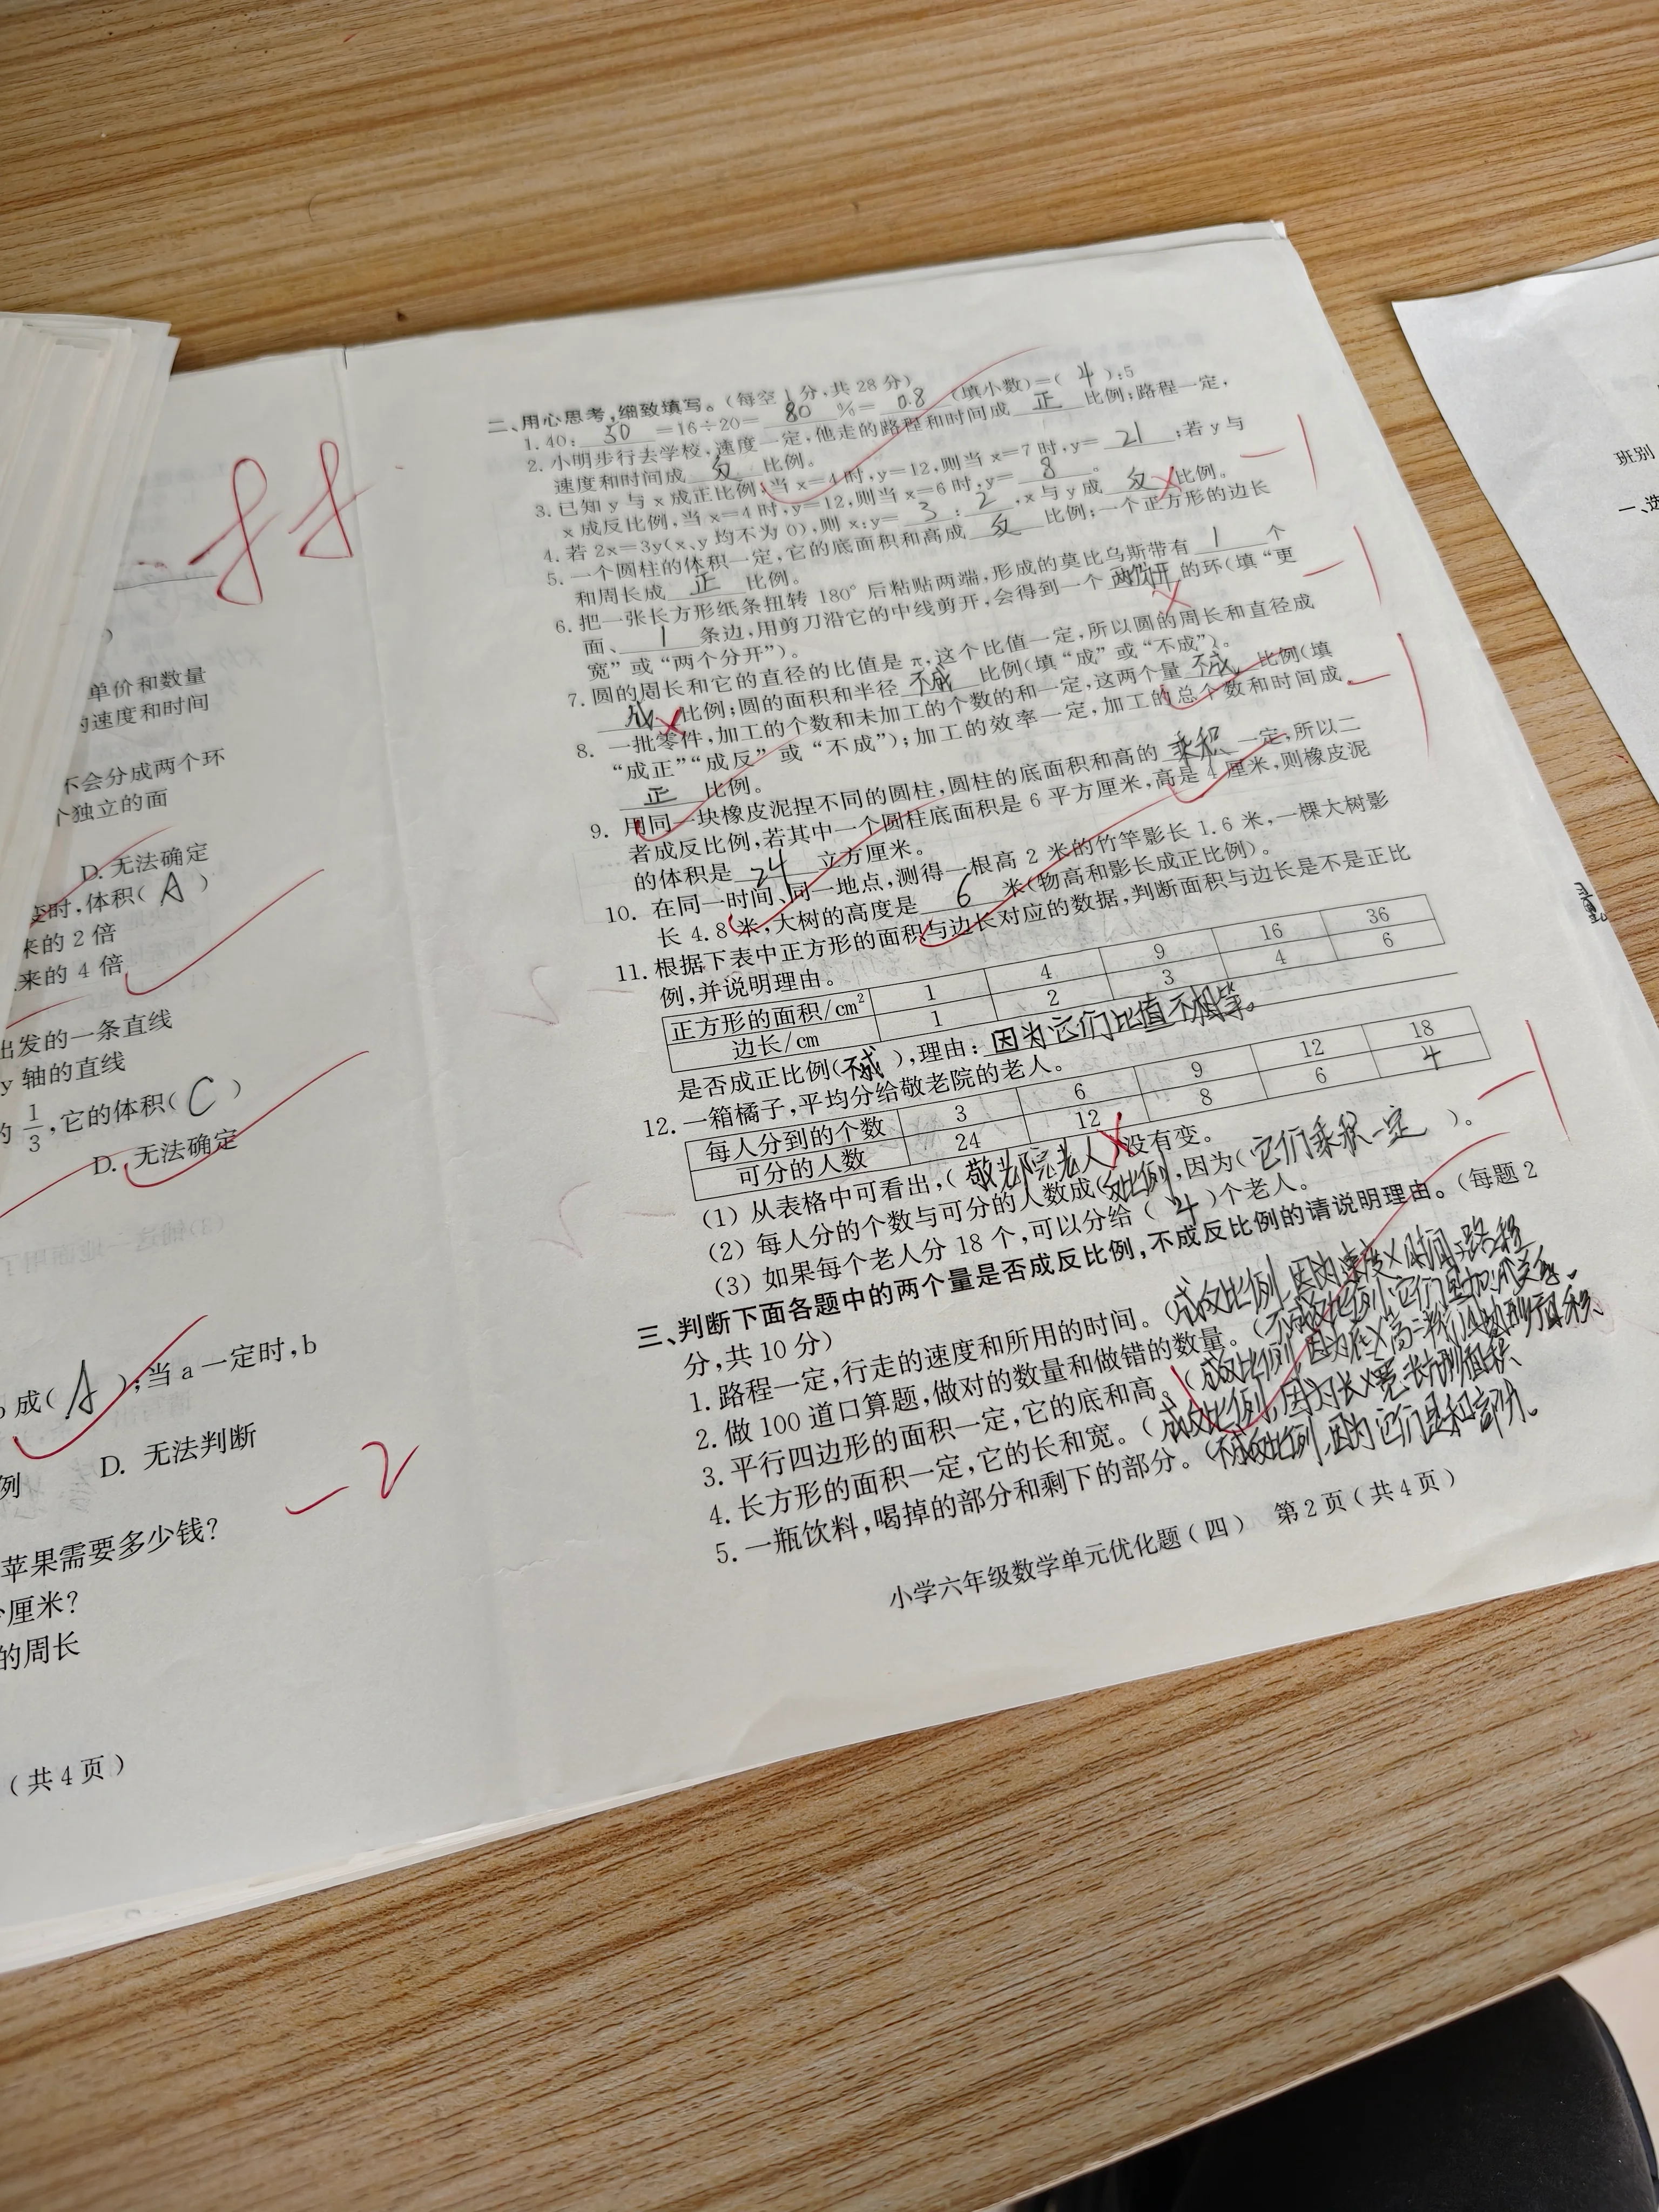 88
单价和数量
的速度和时间
不会分成两个环
个独立的面
D. 无法确定
变时,体积( A )
来的 2 倍
来的 4 倍
出发的一条直线
y 轴的直线
的 1/3 ,它的体积( C )
D. 无法确定
b 成( A );当 a 一定时,b
例 D. 无法判断
-2
苹果需要多少钱?
厘米?
的周长
(共 4 页)
二、用心思考,细致填写。(每空 1 分,共 28 分)
1. 40: 50 =16÷20= 80 %= 0.8 (填小数)=( 4 ):5
2. 小明步行去学校,速度一定,他走的路程和时间成 正 比例;路程一定,
速度和时间成 反 比例。
3. 已知 y 与 x 成正比例,当 x=4 时,y=12,则当 x=7 时,y= 21 ;若 y 与
x 成反比例,当 x=4 时,y=12,则当 x=6 时,y= 8 。
4. 若 2x=3y(x、y 均不为 0),则 x:y= 3 : 2 ,x 与 y 成 反 比例。 -1
5. 一个圆柱的体积一定,它的底面积和高成 反 比例;一个正方形的边长
和周长成 正 比例。
6. 把一张长方形纸条扭转 180° 后粘贴两端,形成的莫比乌斯带有 1 个
面、 1 条边,用剪刀沿它的中线剪开,会得到一个 的环(填“更 -1
宽”或“两个分开”)。
7. 圆的周长和它的直径的比值是 π,这个比值一定,所以圆的周长和直径成
成 比例;圆的面积和半径 不成 比例(填“成”或“不成”)。
8. 一批零件,加工的个数和未加工的个数的和一定,这两个量 不成 比例(填 -1
“成正”“成反”或“不成”);加工的效率一定,加工的总个数和时间成
正 比例。
9. 用同一块橡皮泥捏不同的圆柱,圆柱的底面积和高的 乘积 一定,所以二
者成反比例,若其中一个圆柱底面积是 6 平方厘米,高是 4 厘米,则橡皮泥
的体积是 24 立方厘米。
10. 在同一时间、同一地点,测得一根高 2 米的竹竿影长 1.6 米,一棵大树影
长 4.8 米,大树的高度是 6 米(物高和影长成正比例)。
11. 根据下表中正方形的面积与边长对应的数据,判断面积与边长是不是正比
例,并说明理由。
正方形的面积/cm² 1 4 9 16 36
边长/cm 1 2 3 4 6
是否成正比例( 不成 ),理由: 因为它们比值不相等。
12. 一箱橘子,平均分给敬老院的老人。
每人分到的个数 3 6 9 12 18
可分的人数 24 12 8 6 4
(1) 从表格中可看出,( 敬老院老人 )没有变。 -1
(2) 每人分的个数与可分的人数成( 反比例 ),因为( 它们乘积一定 )。
(3) 如果每个老人分 18 个,可以分给( 4 )个老人。
三、判断下面各题中的两个量是否成反比例,不成反比例的请说明理由。(每题 2
分,共 10 分)
1. 路程一定,行走的速度和所用的时间。(成反比例,因为速度×时间=路程
2. 做 100 道口算题,做对的数量和做错的数量。(不成反比例,它们是加减关系。
3. 平行四边形的面积一定,它的底和高。(成反比例,因为底×高=平行四边形面积。
4. 长方形的面积一定,它的长和宽。(成反比例,因为长×宽=长方形面积
5. 一瓶饮料,喝掉的部分和剩下的部分。(不成反比例,因为它们是和部分。
小学六年级数学单元优化题(四) 第 2 页(共 4 页)
班别
一、选